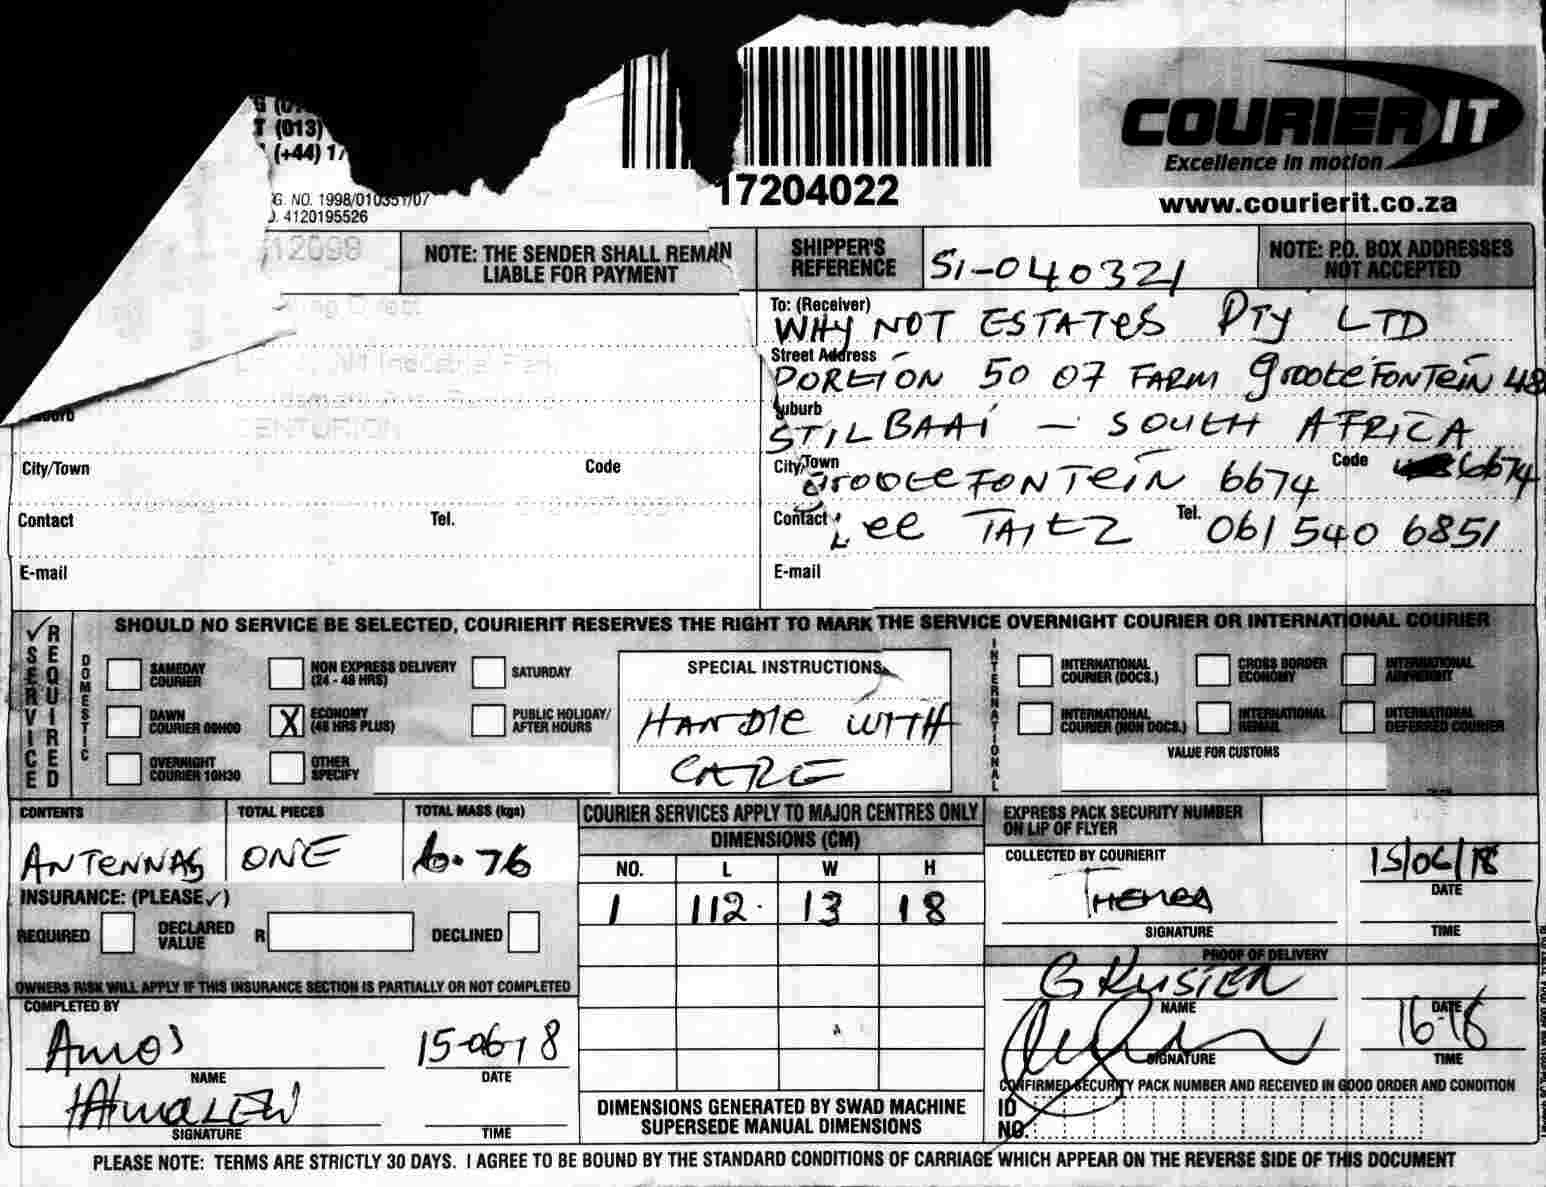 T (013)
(+44) 17
G. NO. 1998/010351/07
4120195526
12098
17204022
COURIER IT
Excellence in motion
www.courierit.co.za
NOTE: THE SENDER SHALL REMAIN
LIABLE FOR PAYMENT
SHIPPER'S
REFERENCE
SI-040321
NOTE: P.O. BOX ADDRESSES
NOT ACCEPTED
To: (Receiver)
WHY NOT ESTATES PTY LTD
Street Address
PORTION 50 OF FARM GROOTEFONTEIN 48
Suburb
STILBAAI - SOUTH AFRICA
CENTURION
City/Town
Code
City/Town
GROOTEFONTEIN 6674
Code
6674
Contact
Tel.
Contact
Lee TAITZ
Tel.
061 540 6851
E-mail
E-mail
✓ SERVICE
REQUIRED
SHOULD NO SERVICE BE SELECTED, COURIERIT RESERVES THE RIGHT TO MARK THE SERVICE OVERNIGHT COURIER OR INTERNATIONAL COURIER
DOMESTIC
SAMEDAY
COURIER
NON EXPRESS DELIVERY
(24 - 48 HRS)
SATURDAY
DAWN
COURIER 09H00
X
ECONOMY
(48 HRS PLUS)
PUBLIC HOLIDAY/
AFTER HOURS
OVERNIGHT
COURIER 10H30
OTHER
SPECIFY
SPECIAL INSTRUCTIONS
HANDLE WITH
CARE
INTERNATIONAL
INTERNATIONAL
COURIER (DOCS.)
CROSS BORDER
ECONOMY
INTERNATIONAL
AIRFREIGHT
INTERNATIONAL
COURIER (NON DOCS.)
INTERNATIONAL
REMAIL
INTERNATIONAL
DEFERRED COURIER
VALUE FOR CUSTOMS
CONTENTS
ANTENNAS
TOTAL PIECES
ONE
TOTAL MASS (kgs)
6.76
INSURANCE: (PLEASE ✓)
REQUIRED
DECLARED
VALUE
R
DECLINED
OWNERS RISK WILL APPLY IF THIS INSURANCE SECTION IS PARTIALLY OR NOT COMPLETED
COMPLETED BY
Amos
NAME
15-06-18
DATE
SIGNATURE
TIME
COURIER SERVICES APPLY TO MAJOR CENTRES ONLY
DIMENSIONS (CM)
NO. L W H
1 112. 13 18
DIMENSIONS GENERATED BY SWAD MACHINE
SUPERSEDE MANUAL DIMENSIONS
EXPRESS PACK SECURITY NUMBER
ON LIP OF FLYER
COLLECTED BY COURIERIT
THEMBA
SIGNATURE
15/06/18
DATE
TIME
PROOF OF DELIVERY
G KUSTER
NAME
DATE
SIGNATURE
TIME
CONFIRMED SECURITY PACK NUMBER AND RECEIVED IN GOOD ORDER AND CONDITION
ID
NO.
PLEASE NOTE: TERMS ARE STRICTLY 30 DAYS. I AGREE TO BE BOUND BY THE STANDARD CONDITIONS OF CARRIAGE WHICH APPEAR ON THE REVERSE SIDE OF THIS DOCUMENT